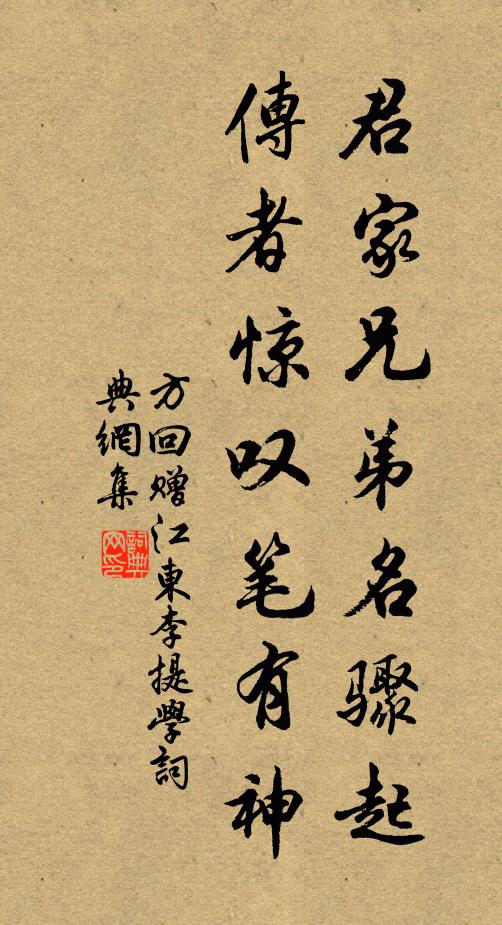 君家兄弟名骤起
傳者惊叹笔有神
方回赠江東李提學詞
典網集
詞典
网印